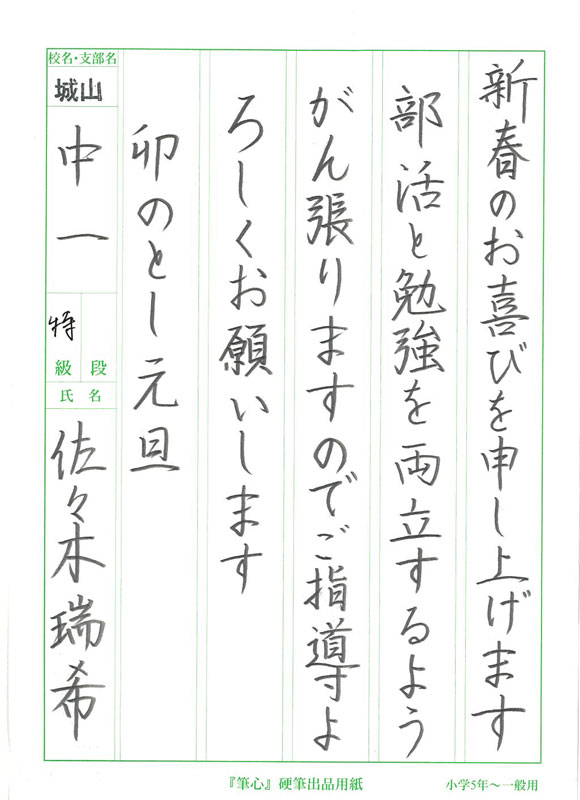 新春のお喜びを申し上げます
部活と勉強を両立するよう
がん張りますのでご指導よ
ろしくお願いします
卯のとし元旦
校名・支部名
城山
中一
特
級 段
氏 名
佐々木瑞希
『筆心』硬筆出品用紙
小学5年～一般用